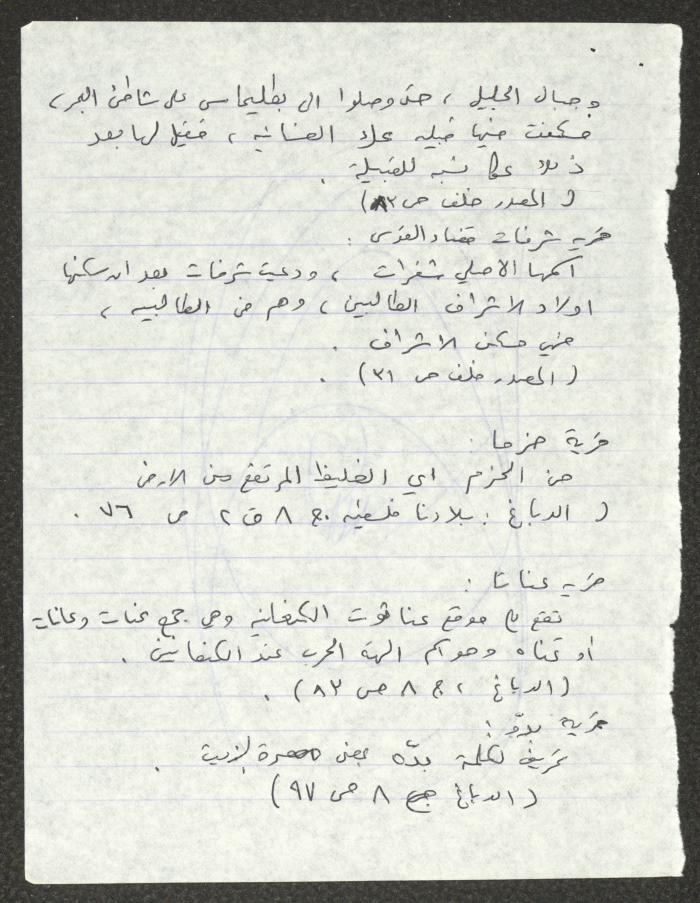 وجبال الجليل ، حتى وصلوا الى بطليماس على شاطئ البحر ،
فسكنت فيها قبيلة عك الغسانيه ، فقيل لها بعد
ذلك عكا نسبه للقبيلة .
( المصدر خلف ص ٨٢)
قريه شرفات قضاء القدس :
اسمها الاصلي شفرات ، ودعيت شرفات بعد ان سكنها
اولاد الاشراف الطالبين ، وهم من الطالبيه ،
فهي مسكن الاشراف .
( المصدر خلف ص ٣١ ) .
قرية حزما :
من الحزم اي الغليظ المرتفع من الارض
( الدباغ : بلادنا فلسطين ج ٨ ق ٢ ص ٧٦ .
قريه عناتا :
تقع على موقع عناثوت الكنعانيه وهي جمع عنات وعانات
او عناه وهو اسم الهة الحرب عند الكنعانيين .
( الدباغ ، ج ٨ ص ٨٣ ) .
قرية بدّو :
تحريف لكلمة بدّه بمعنى معصرة الزيت .
( الدباغ ج ٨ ص ٩٧ )